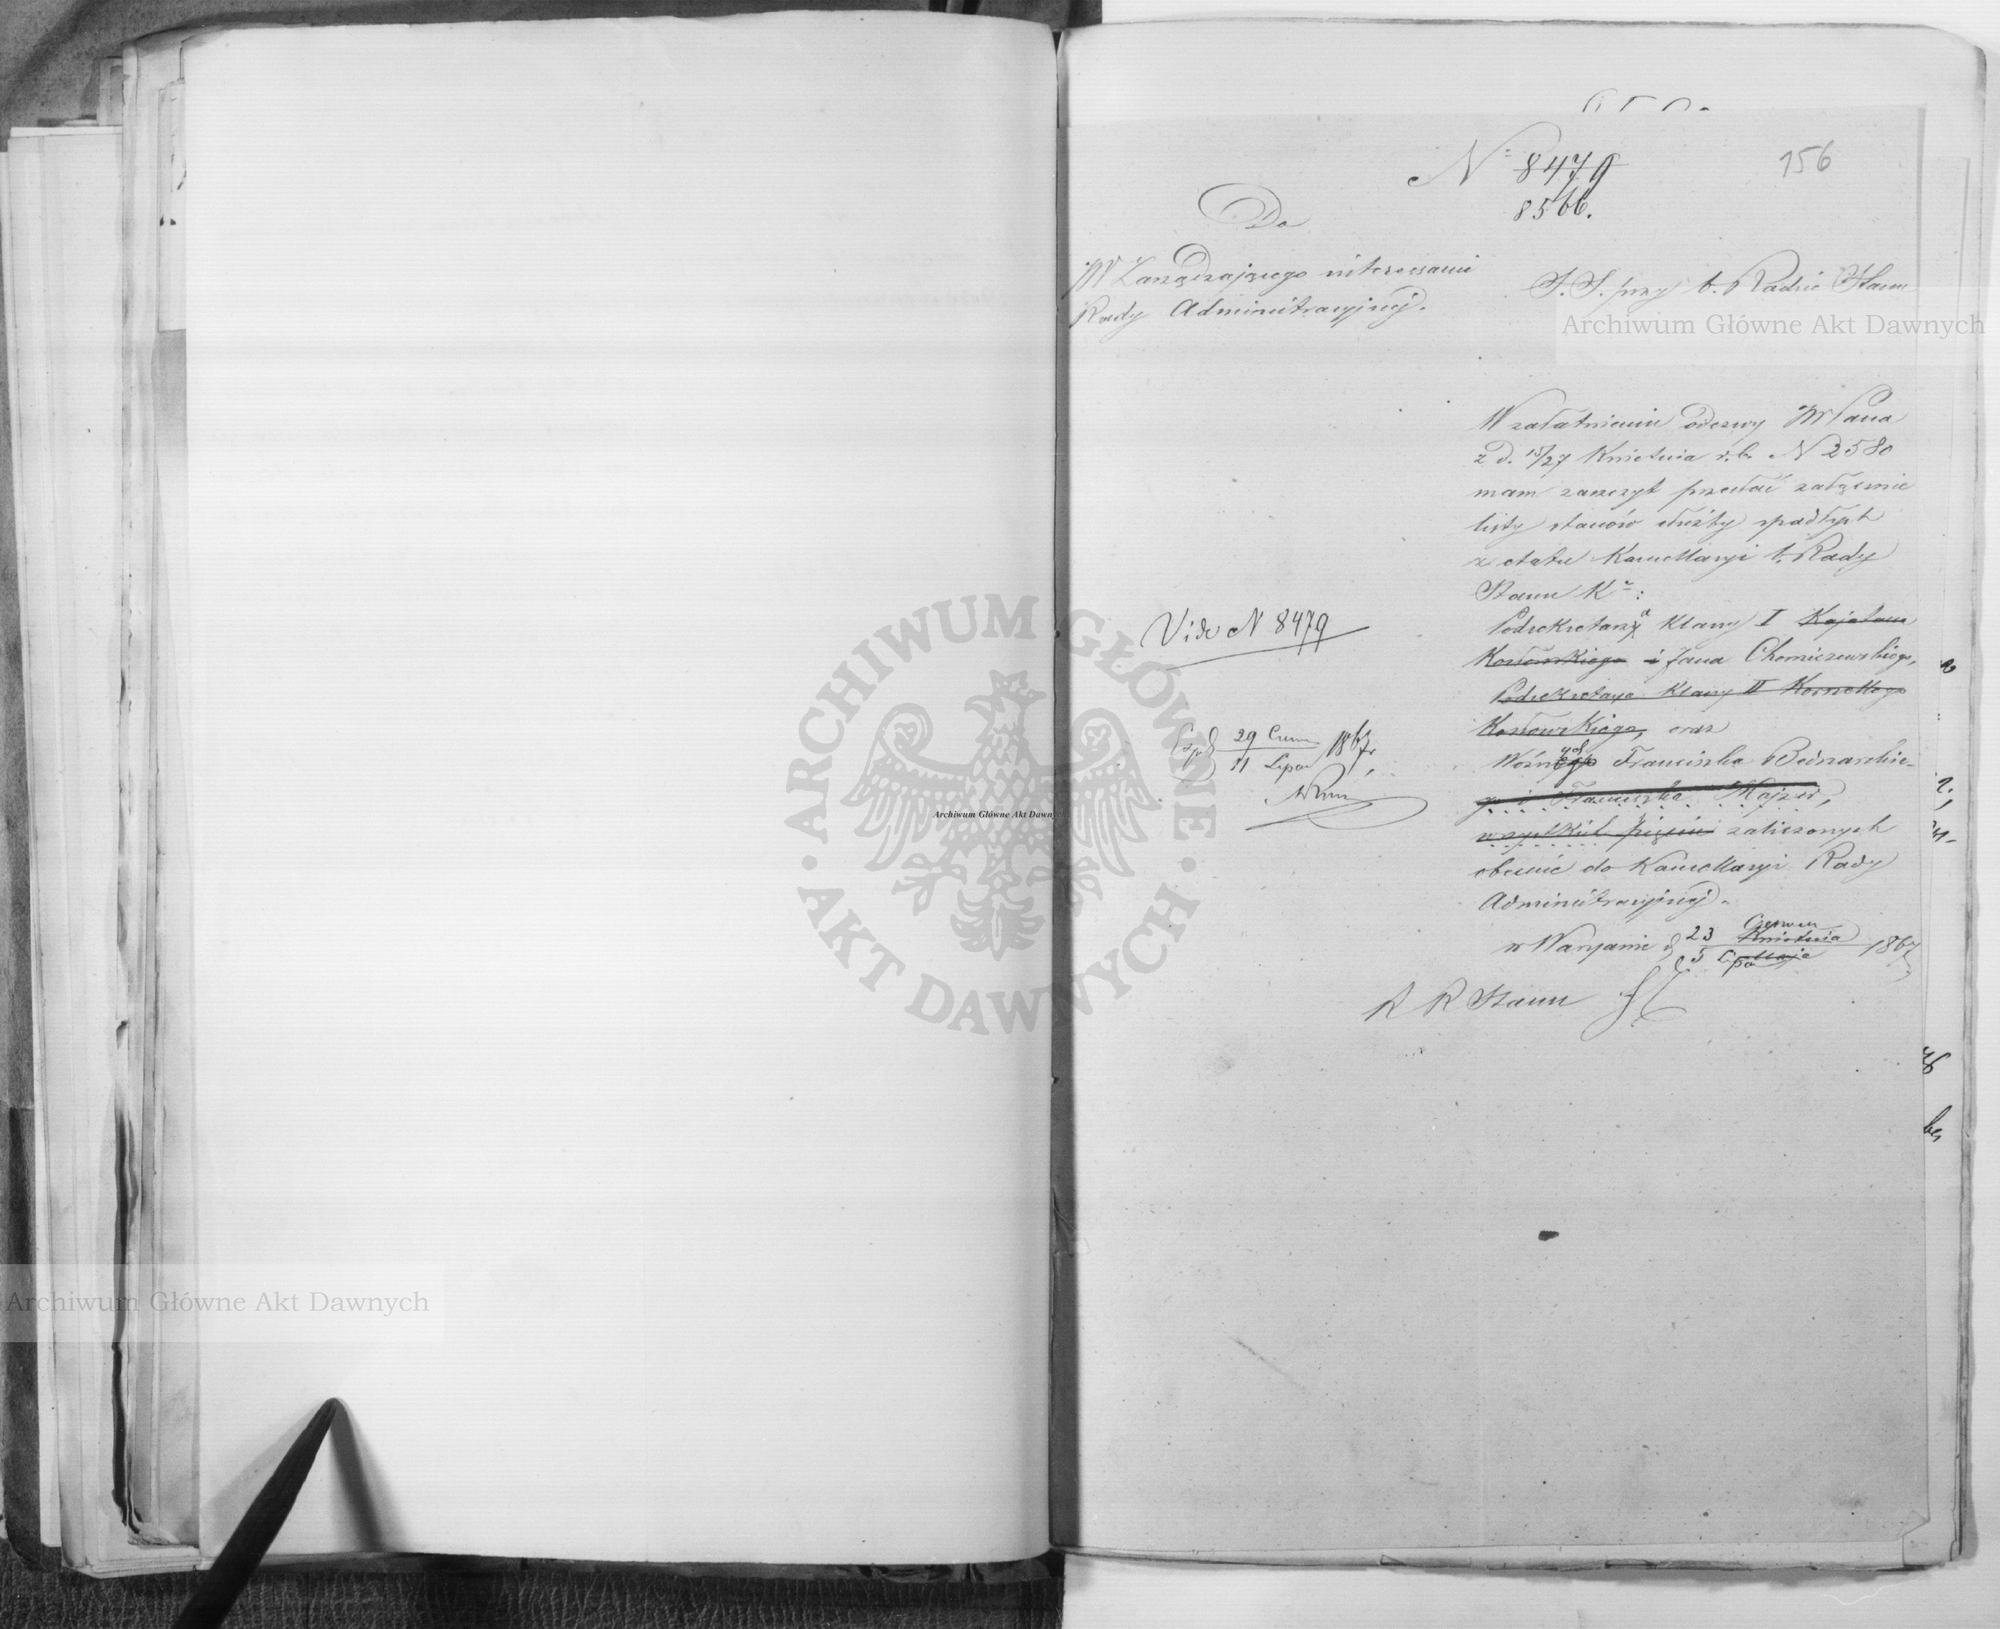 156
N° 8479
8566.
Do
W Zarządzającego interesami
Rady Administracyjnej.
S. S. przy b. Radzie Stanu
W załatwieniu odezwy W Pana
z d. 15/27 Kwietnia r.b. N 2580
mam zaszczyt przesłać załącznie
listy stanów służby spadłych
z etatu Kancellaryi b. Rady
Stanu Kr:
Podsekretarza Klassy I Kajetana
Kosłowskiego i Jana Chomiczewskiego,
Podsekretarza Klassy II Kornellego
Kosłowskiego, oraz
Woźnego Franciszka Bednarskie-
go i Franciszka Majzer,
wszystkich pięciu zaliczonych
obecnie do Kancellaryi Rady
Administracyjnej.
w Warszawie d 23 Czerwca Kwietnia / 5 Lipca Maja 1867
R R Stanu
Vide N 8479
Exp d 29 Czerw / 11 Lipca 1867r.
Archiwum Główne Akt Dawnych
Archiwum Główne Akt Dawnych
Archiwum Główne Akt Dawnych
ARCHIWUM GŁÓWNE AKT DAWNYCH